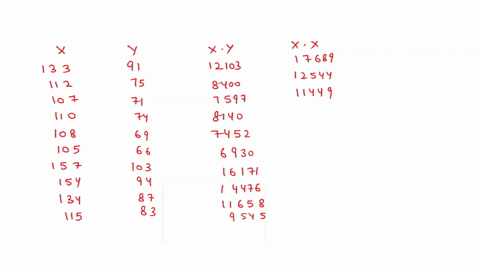 X Y X·Y X·X
133 91 12103 17689
112 75 8400 12544
107 71 7597 11449
110 74 8140
108 69 7452
105 66 6930
157 103 16171
154 94 14476
134 87 11658
115 83 9545